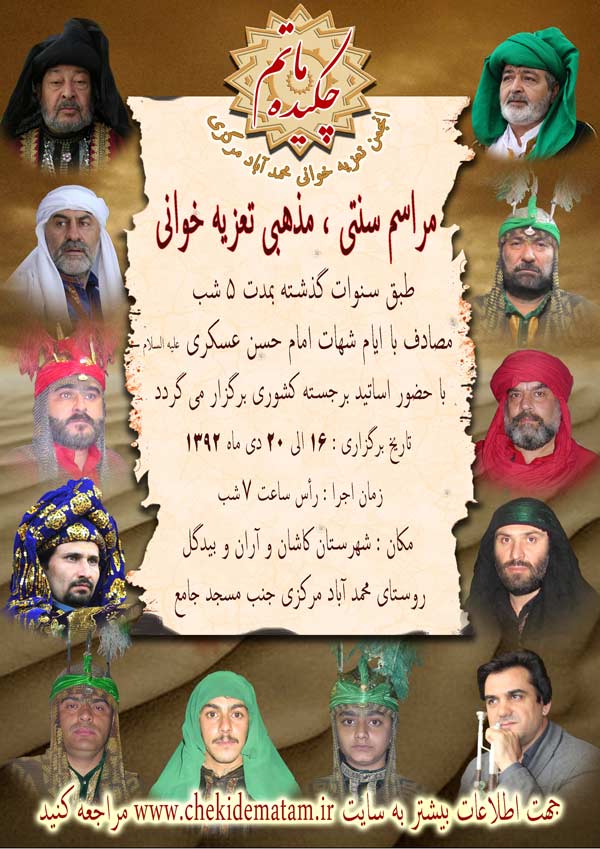 چکیده ماتم
انجمن تعزیه خوانی محمد آباد مرکزی
مراسم سنتی ، مذهبی تعزیه خوانی
طبق سنوات گذشته بمدت ۵ شب
مصادف با ایام شهات امام حسن عسکری علیه السلام
با حضور اساتید برجسته کشوری برگزار می گردد
تاریخ برگزاری : ۱۶ الی ۲۰ دی ماه ۱۳۹۲
زمان اجرا : رأس ساعت ۷شب
مکان : شهرستان کاشان و آران و بیدگل
روستای محمد آباد مرکزی جنب مسجد جامع
جهت اطلاعات بیشتر به سایت www.chekidematam.ir مراجعه کنید